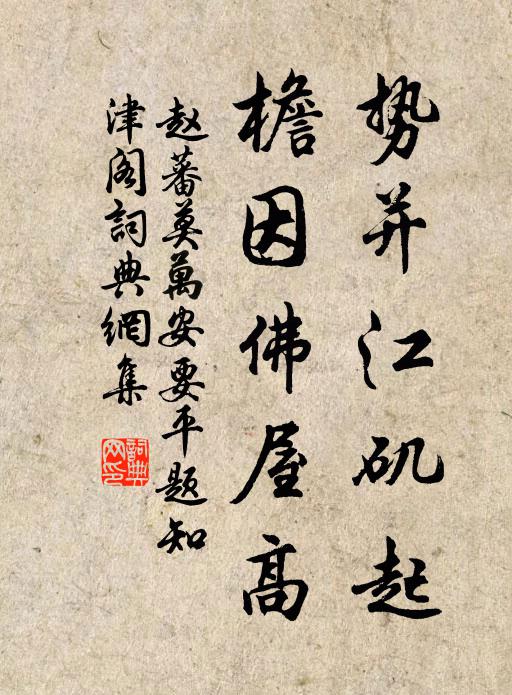 势并江矶起
檐因佛屋高
赵蕃莫萬安要平题知
津阁詞典網集
詞典網印